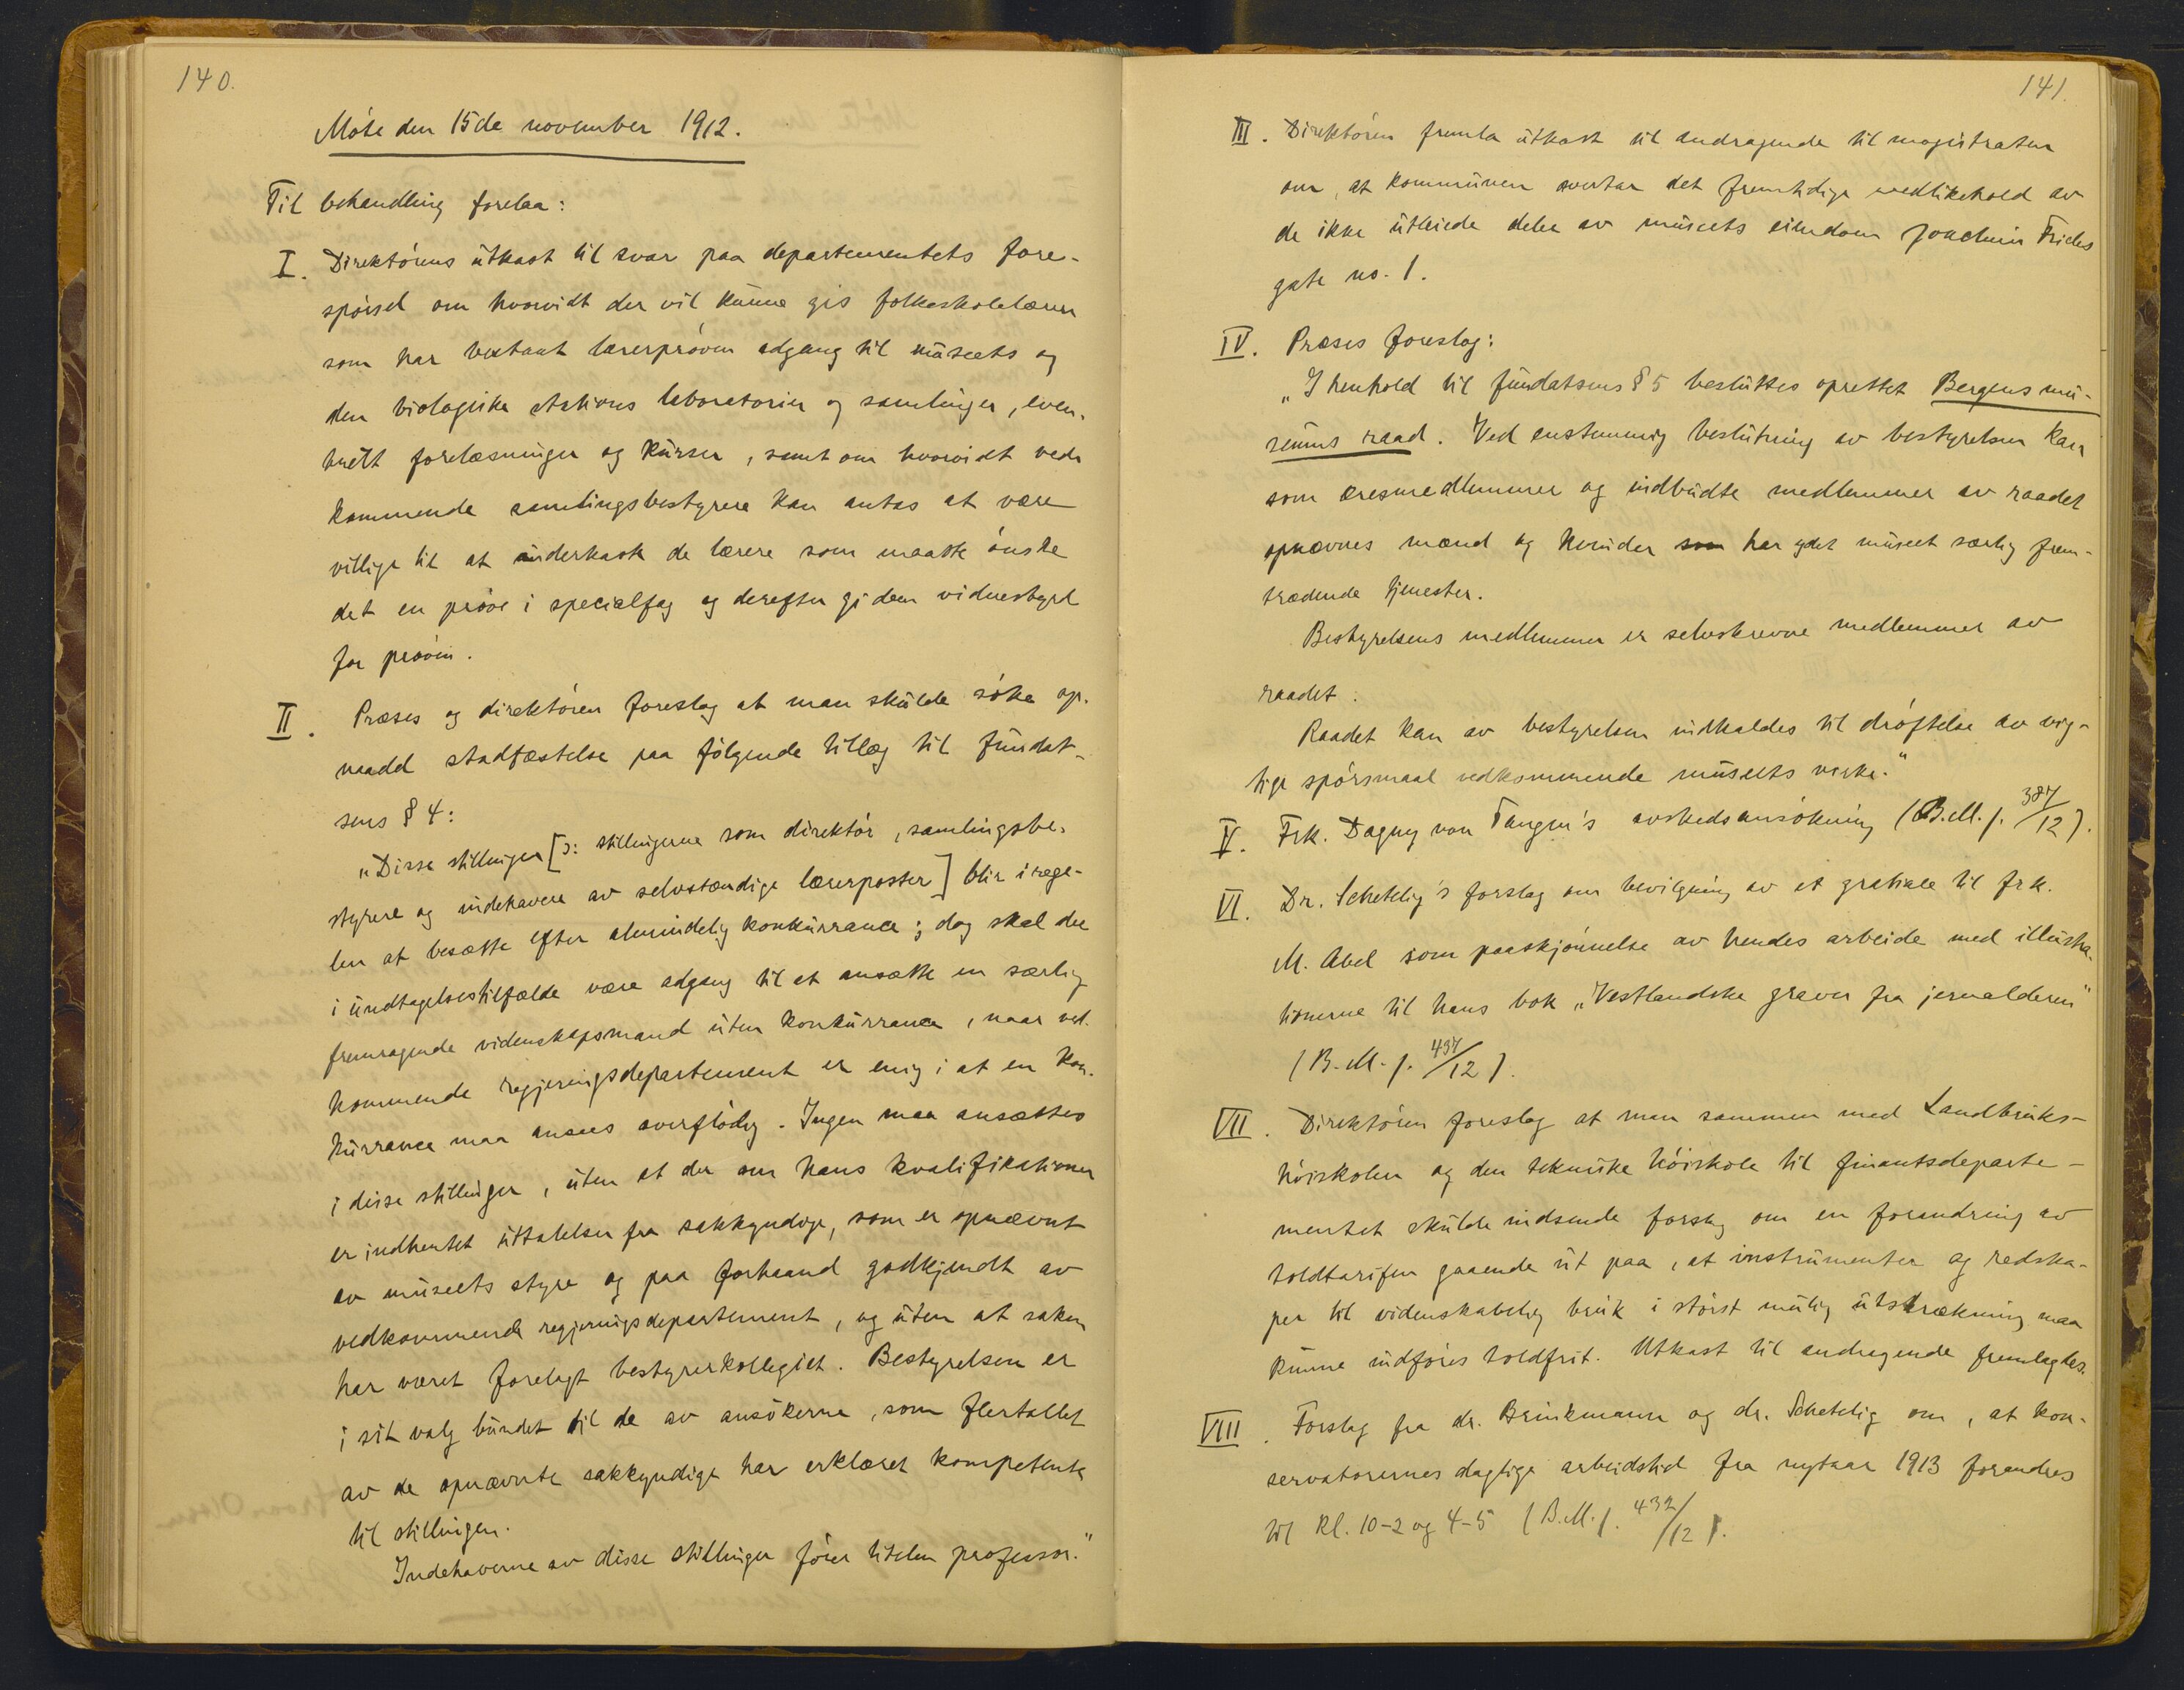 140.
Møte den 15de november 1912.
Til behandling forelaa:
I. Direktørens utkast til svar paa departementets fore-
spørsel om hvorvidt der vil kunne gis folkeskolelærer
som har bestaat lærerprøven adgang til museets og
den biologiske stations laboratorier og samlinger, even-
tuelt forelæsninger og kurser, samt om hvorvidt ved-
kommende samlingsbestyrere kan antas at være
villige til at underkaste de lærere som maatte ønske
det en prøve i specialfag og derefter gi dem vidnesbyrd
for prøven.
II. Præses og direktøren foreslog at man skulde søke op-
naadd stadfæstelse paa følgende tillæg til fundat-
sens § 4:
„Disse stillinger [ɔ: stillingerne som direktør, samlingsbe-
styrere og indehavere av selvstændige lærerposter] blir i rege-
len at besætte efter almindelig konkurrance; dog skal der
i undtagelsestilfælde være adgang til at ansætte en særlig
fremragende videnskapsmand uten konkurrance, naar ved-
kommende regjeringsdepartement er enig i at en kon-
kurrance maa ansees overflødig. Ingen maa ansættes
i disse stillinger, uten at der om hans kvalifikationer
er indhentet uttalelser fra sakkyndige, som er opnævnt
av museets styre og paa forhaand godkjendt av
vedkommende regjeringsdepartement, og uten at saken
har været forelagt bestyrerkollegiet. Bestyrelsen er
i sit valg bundet til de av ansøkerne, som flertallet
av de opnævnte sakkyndige har erklæret kompetente
til stillingen.
Indehaverne av disse stillinger fører titelen professor."
141.
III. Direktøren fremla utkast til andragende til magistraten
om, at kommunen overtar det fremtidige vedlikehold av
de ikke utleiede deler av museets eiendom Joachim Frieles
gate no. 1.
IV. Præses foreslog:
„I henhold til fundatsens § 5 besluttes oprettet Bergens mu-
seums raad. Ved enstemmig beslutning av bestyrelsen kan
som æresmedlemmer og indbudte medlemmer av raadet
opnævnes mænd og kvinder som har ydet museet særlig frem-
trædende tjenester.
Bestyrelsens medlemmer er selvskrevne medlemmer av
raadet.
Raadet kan av bestyrelsen indkaldes til drøftelse av vig-
tige spørsmaal vedkommende museets virke."
V. Frk. Dagny von Tangen's avskedsansøkning (B.M.j. 387/12).
VI. Dr. Schetelig's forslag om bevilgning av et gratiale til frk.
M. Abel som paaskjønnelse av hendes arbeide med illustra-
tionerne til hans bok „Vestlandske graver fra jernalderen"
(B.M.j. 437/12).
VII. Direktøren foreslog at man sammen med Landbruks-
høiskolen og den tekniske høiskole til finantsdeparte-
mentet skulde indsende forslag om en forandring av
toldtarifen gaaende ut paa, at instrumenter og redska-
per til videnskabelig bruk i størst mulig utstrækning maa
kunne indføres toldfrit. Utkast til andragende fremlagdes.
VIII. Forslag fra dr. Brinkmann og dr. Schetelig om, at kon-
servatorernes daglige arbeidstid fra nytaar 1913 forandres
til kl. 10-2 og 4-5 (B.M.j. 432/12).